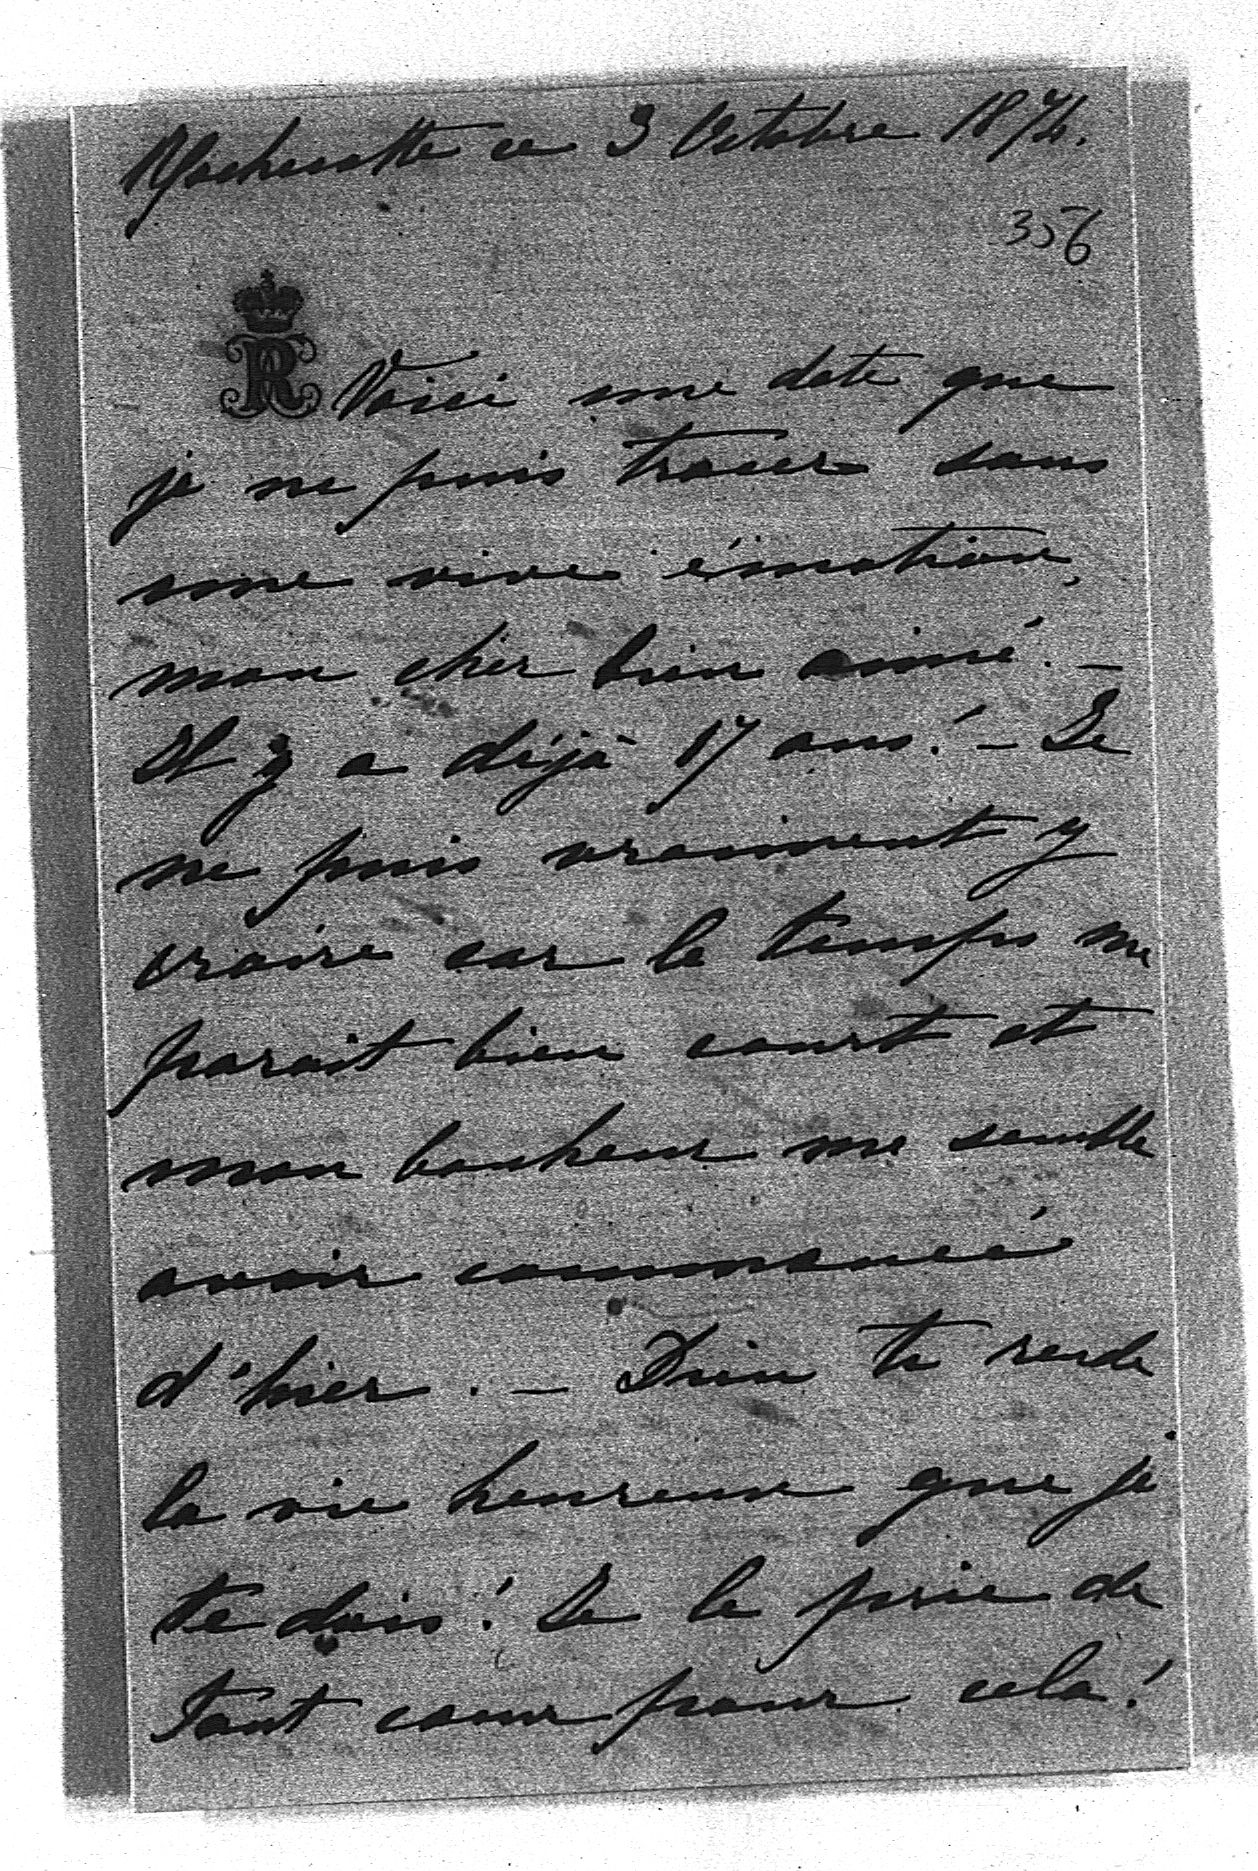 Rochecotte ce 3 Octobre 1874.
356
R
Voici une date que
je ne puis tracer sans
une vive émotion,
mon cher bien aimé. –
Il y a déjà 17 ans! – Je
ne puis vraiment y
croire car le temps me
parait bien court et
mon bonheur me semble
avoir commencé
d'hier. – Dieu te rende
la vie heureuse que je
te dois! Je le prie de
tout cœur pour cela!